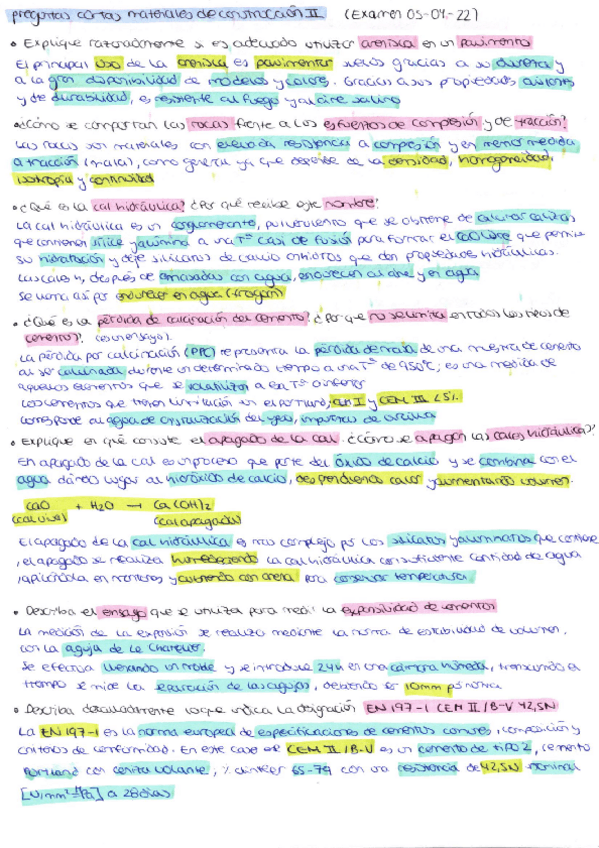 preguntas cortas materiales de construcción II (Examen 05-04-22)
• Explique razonadamente si es adecuado utilizar arenisca en un pavimento
El principal uso de la arenisca es pavimentar suelos gracias a su dureza y
a la gran disponibilidad de modelos y colores. Gracias a sus propiedades
y de durabilidad, es resistente al fuego y al aire salino
• ¿Cómo se comportan las rocas frente a los esfuerzos de compresión y de tracción?
Las rocas son materiales con elevada resistencia a compresión y en menor medida
a tracción (mala), como general ya que depende de la densidad, homogeneidad,
isotropía y continuidad
• ¿Qué es la cal hidráulica? ¿Por qué recibe este nombre?
La cal hidráulica es un conglomerante, pulverulento que se obtiene de calcinar calizas
que contienen sílice y alumina a una Tª casi de fusión para formar el CaO libre que permite
su hidratación y deje silicatos de calcio anhidros que dan propiedades hidráulicas.
Las cales h, después de amasadas con agua, endurecen al aire y en agua
Se llama así por endurecer en agua (fraguan)
• ¿Qué es la pérdida de calcinación del cemento? ¿Por que no se limita en todos los tipos de
cemento? (es un ensayo).
La pérdida por calcinación (PPC) representa la pérdida de masa de una muestra de cemento
al ser calcinada durante un determinado tiempo a una Tª de 950ºC; es una medida de
aquellos elementos que se volatilizan a esa Tª o inferior
Los cementos que tienen limitación son el portland, CEM I y CEM III ≤5%
corresponde al agua de cristalización del yeso, impurezas de
• Explique en qué consiste el apagado de la cal. ¿Cómo se apagan las cales hidráulica?
El apagado de la cal es un proceso que parte del óxido de calcio y se combina con el
agua dando lugar al hidróxido de calcio, desprendiendo calor y aumentando volumen.
CaO + H₂O → Ca(OH)₂
(cal viva) (cal apagada)
El apagado de la cal hidráulica es mas complejo por los silicatos y aluminatos que contiene
, el apagado se realiza humedeciendo la cal hidráulica con suficiente cantidad de agua
, apilándola en montones y cubriendo con arena para conservar temperatura.
• Describa el ensayo que se utiliza para medir la expansibilidad de cementos
La medición de la expansión se realiza mediante la norma de estabilidad de volumen,
con la aguja de Le Chatelier.
Se efectua llenando un molde y se introduce 24h en una cámara húmeda, transcurrido el
tiempo se mide la separación de las agujas, debiendo ser 10mm por norma
• Describa detalladamente lo que indica la designación EN 197-1 CEM II/B-V 42,5N
La EN 197-1 es la norma europea de especificaciones de cementos comunes, composición y
criterios de conformidad. En este caso el CEM II/B-V es un cemento de tipo 2, cemento
Portland con ceniza volante, % clinker 65-79 con una resistencia de 42,5N nominal
a 28 dias